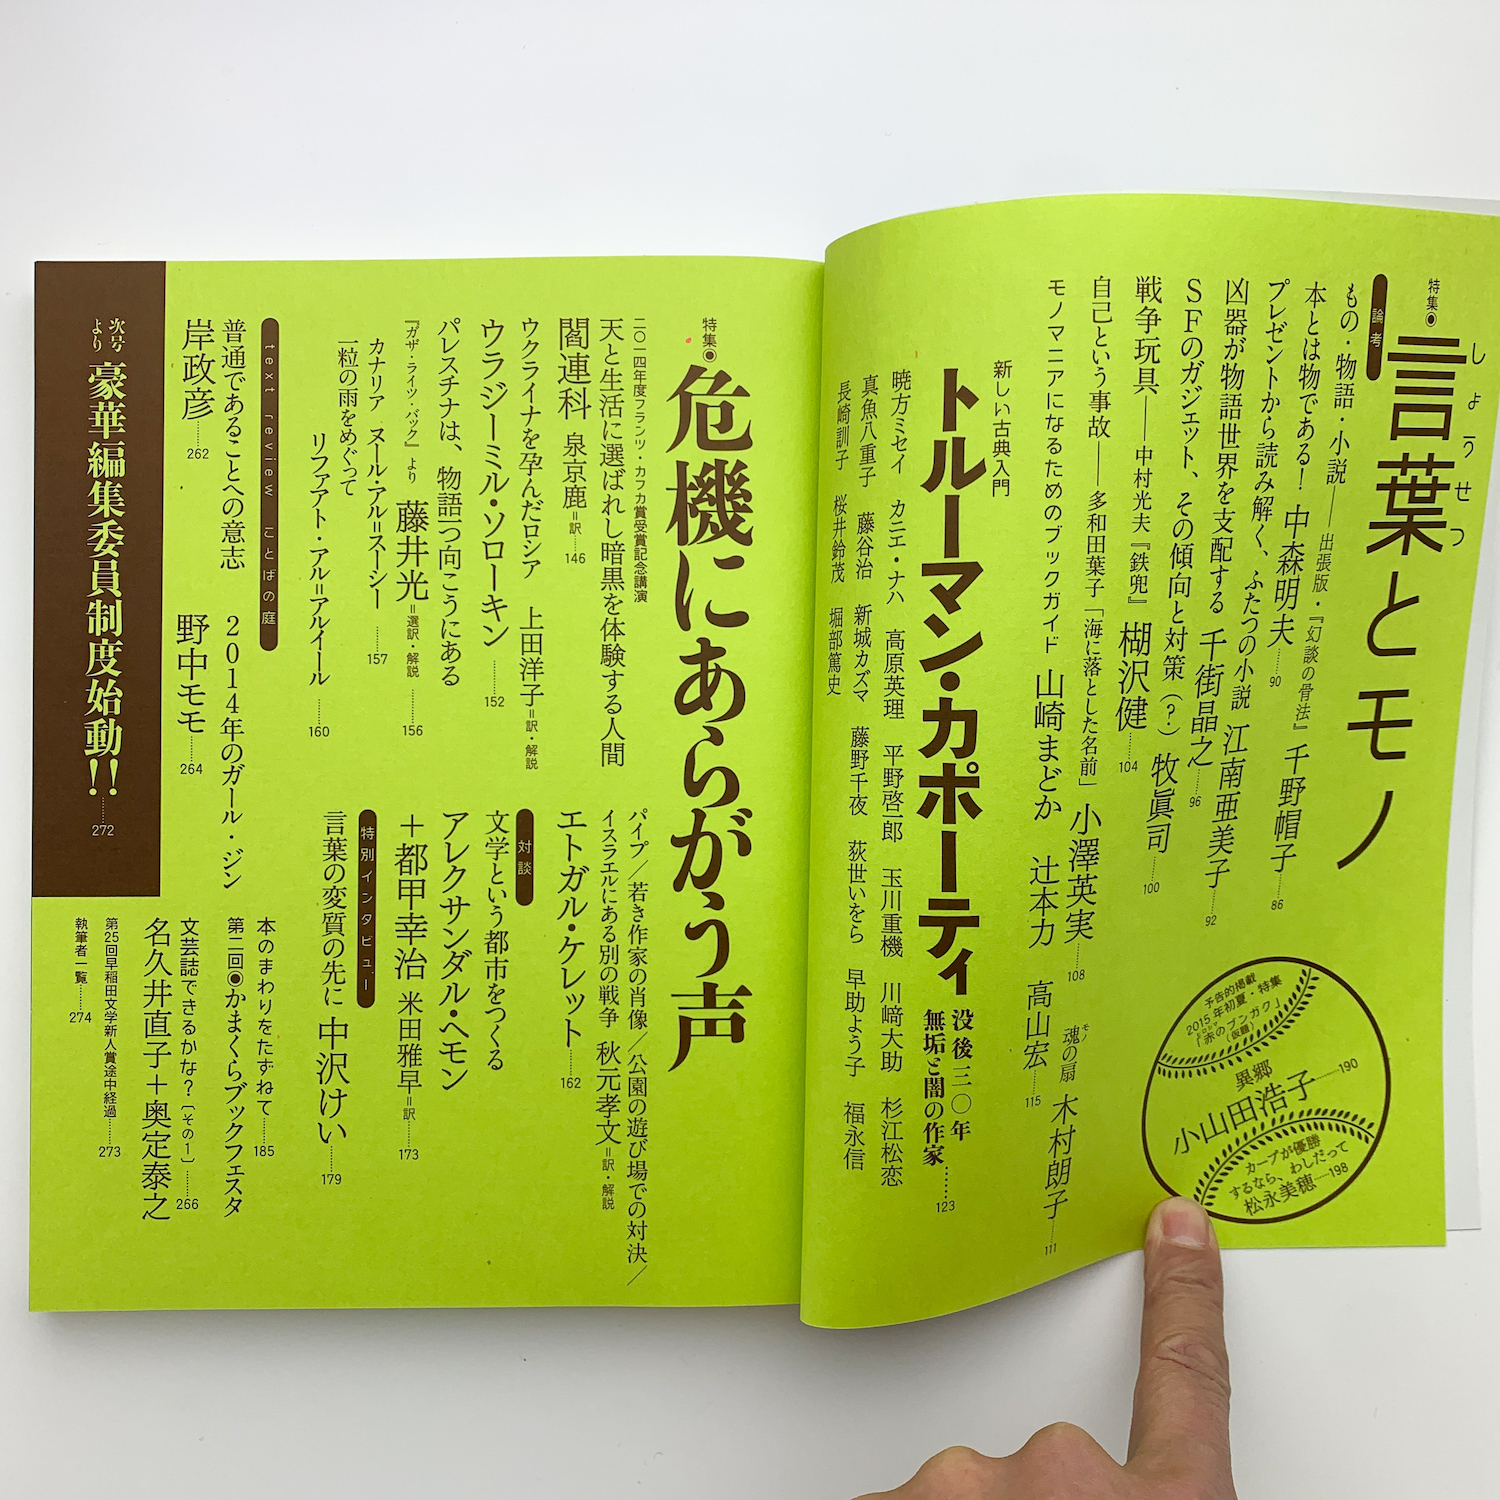 特集◉
言葉とモノ
しょうせつ
論考
もの・物語・小説——出張版・『幻談の骨法』 千野帽子……86
本とは物である! 中森明夫……90
プレゼントから読み解く、ふたつの小説 江南亜美子……92
凶器が物語世界を支配する 千街晶之……96
SFのガジェット、その傾向と対策(?) 牧眞司……100
戦争玩具——中村光夫『鉄兜』 楜沢健……104
自己という事故——多和田葉子「海に落とした名前」 小澤英実……108
モノマニアになるためのブックガイド 山崎まどか 辻本力 高山宏……115
魂の扇 木村朗子……111
モノ
予告的掲載
2015年初夏・特集
「赤のブンガク」
(仮題)
異郷
小山田浩子——190
カープが優勝
するなら、わしだって
松永美穂——198
新しい古典入門
トルーマン・カポーティ
没後三〇年
無垢と闇の作家……123
暁方ミセイ カニエ・ナハ 高原英理 平野啓一郎 玉川重機 川﨑大助 杉江松恋
真魚八重子 藤谷治 新城カズマ 藤野千夜 荻世いをら 早助よう子 福永信
長崎訓子 桜井鈴茂 堀部篤史
特集◉
危機にあらがう声
二〇一四年度フランツ・カフカ賞受賞記念講演
天と生活に選ばれし暗黒を体験する人間
閻連科 泉京鹿=訳……146
ウクライナを孕んだロシア 上田洋子=訳・解説
ウラジーミル・ソローキン……152
パレスチナは、物語一つ向こうにある
『ガザ・ライツ・バック』より 藤井光=選訳・解説……156
カナリア ヌール・アル=スーシー……157
一粒の雨をめぐって
リファアト・アル=アルイール……160
パイプ/若き作家の肖像/公園の遊び場での対決/
イスラエルにある別の戦争 秋元孝文=訳・解説
エトガル・ケレット……162
対談
文学という都市をつくる
アレクサンダル・ヘモン
+都甲幸治 米田雅早=訳……173
特別インタビュー
言葉の変質の先に 中沢けい……179
text review ことばの庭
普通であることへの意志
岸政彦……262
2014年のガール・ジン
野中モモ……264
本のまわりをたずねて……185
第二回◉かまくらブックフェスタ
文芸誌できるかな?[その1]……266
名久井直子+奥定泰之
第25回早稲田文学新人賞途中経過……273
執筆者一覧……274
次号より 豪華編集委員制度始動!!……272